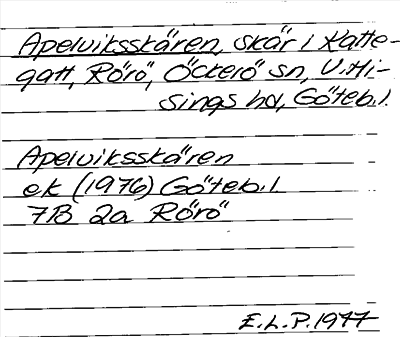 Apelviksskären, skär i Katte-
gatt, Rörö, Öckerö sn, V. Hi-
sings hd, Göteb. l.
Apelviksskären
ek (1976) Göteb. l
7B 2a Rörö
E.L.P. 1977